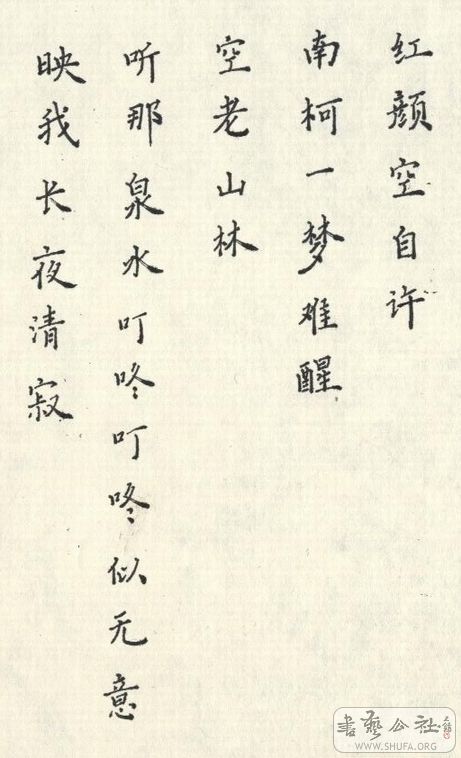 红颜空自许
南柯一梦难醒
空老山林
听那泉水叮咚叮咚似无意
映我长夜清寂
书艺公社
WWW.SHUFA.ORG